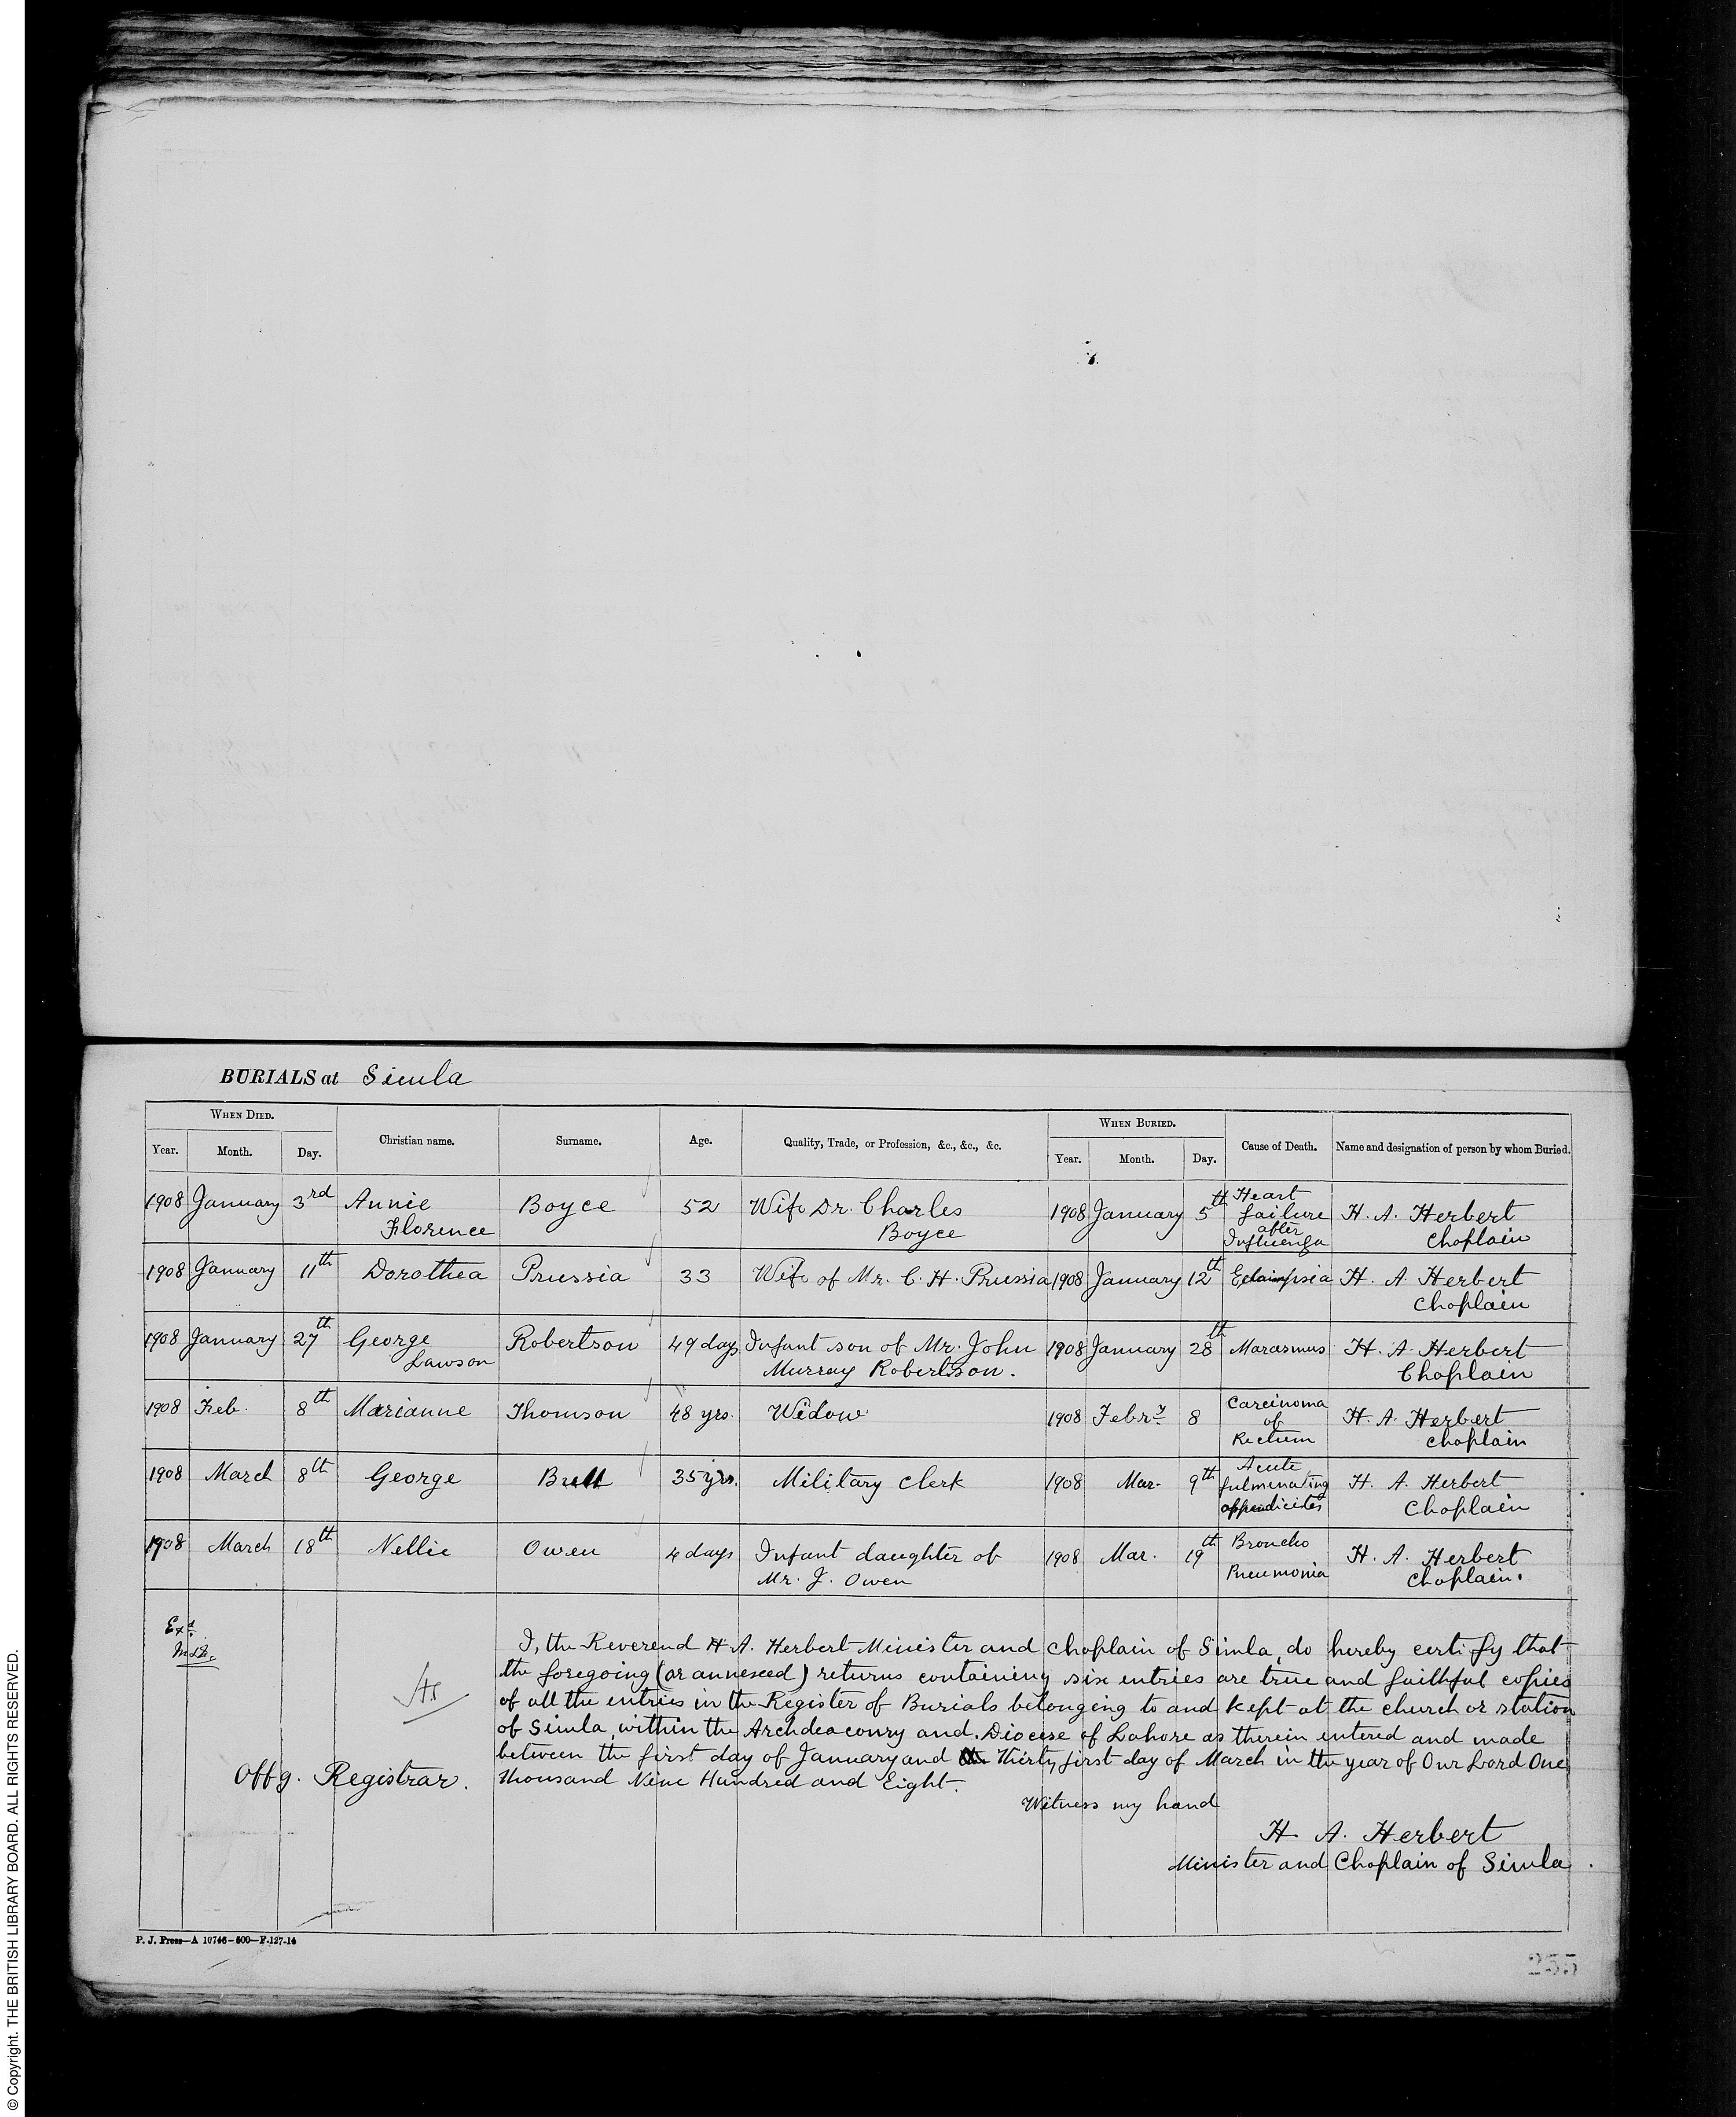 BURIALS at Simla
WHEN DIED. WHEN BURIED.
Year. Month. Day. Christian name. Surname. Age. Quality, Trade, or Profession, &c., &c., &c. Year. Month. Day. Cause of Death. Name and designation of person by whom Buried.
1908 January 3rd Annie Florence Boyce 52 Wife Dr. Charles Boyce 1908 January 5th Heart failure after Influenza H. A. Herbert Chaplain
1908 January 11th Dorothea Prussia 33 Wife of Mr. C. H. Prussia 1908 January 12th Eclampsia H. A. Herbert Chaplain
1908 January 27th George Lawson Robertson 49 days Infant son of Mr. John Murray Robertson. 1908 January 28th Marasmus H. A. Herbert Chaplain
1908 Feb. 8th Marianne Thomson 48 yrs. Widow 1908 Febry 8 Carcinoma of Rectum H. A. Herbert Chaplain
1908 March 8th George 35 yrs. Military Clerk 1908 Mar. 9th Acute fulmenating appendicites H. A. Herbert Chaplain
1908 March 18th Nellie Owen 4 days Infant daughter of Mr. J. Owen 1908 Mar. 19th Broncho Pneumonia H. A. Herbert Chaplain.
Exd.
I, the Reverend H. A. Herbert Minister and Chaplain of Simla, do hereby certify that
the foregoing (or annexed) returns containing six entries are true and faithful copies
of all the entries in the Register of Burials belonging to and kept at the church or station
of Simla, within the Archdeaconry and Diocese of Lahore as therein entered and made
between the first day of January and Thirty first day of March in the year of Our Lord One
Thousand Nine Hundred and Eight.
Offg. Registrar.
Witness my hand
H. A. Herbert
Minister and Chaplain of Simla.
P. J. Press—A 10746—500—F-127-14
255
© Copyright. THE BRITISH LIBRARY BOARD. ALL RIGHTS RESERVED.